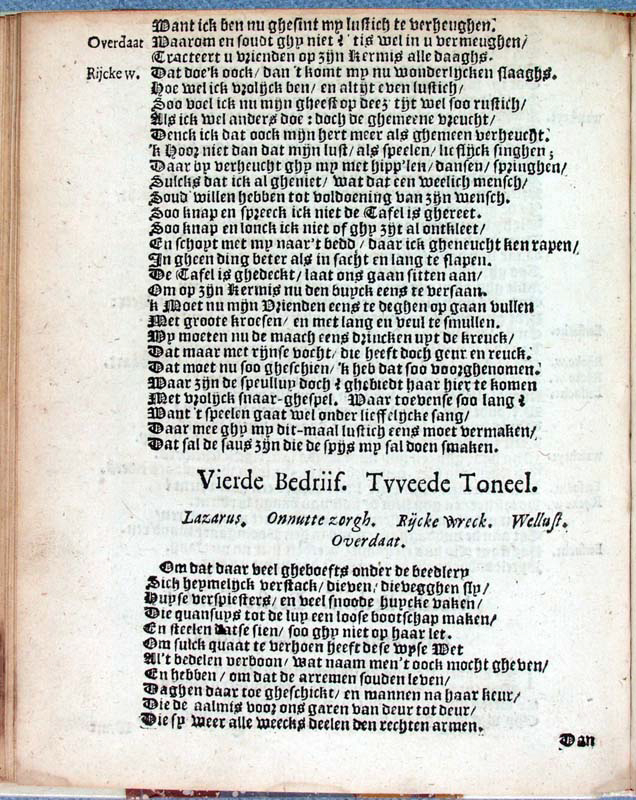 Want ick ben nu ghesint my lustich te verheughen.
Overdaat Waarom en soudt ghy niet? 'tis wel in u vermeughen/
Tracteert u vrienden op zijn Kermis alle daaghs.
Rijcke w. Dat doe'k oock/ dan 't komt my nu wonderlijcken slaaghs.
Hoe wel ick vrolijck ben/ en altijt even lustich/
Soo voel ick nu mijn gheest op deez' tijt wel soo rustich/
Als ick wel anders doe: doch de ghemeene vreucht/
Denck ick dat oock mijn hert meer als ghemeen verheucht.
'k Hoor niet dan dat mijn lust/ als speelen/ lieflijck singhen;
Daar by verheucht ghy my met hipp'len/ dansen/ springhen/
Sulcks dat ick al gheniet/ wat dat een weelich mensch/
Soud' willen hebben tot voldoening van zijn wensch.
Soo knap en spreeck ick niet de Tafel is ghereet.
Soo knap en lonck ick niet of ghy zijt al ontkleet/
En schoyt met my naar't bedd/ daar ick gheneucht ken rapen/
In gheen ding beter als in sacht en lang te slapen.
De Tafel is ghedeckt/ laat ons gaan sitten aan/
Om op zijn Kermis nu den buyck eens te versaan.
'k Moet nu mijn Vrienden eens te deghen op gaan vullen
Met groote kroesen/ en met lang en veul te smullen.
Wy moeten nu de maach eens drincken uyt de kreuck/
Dat maar met rijnse vocht/ die heeft doch geur en reuck.
Dat moet nu soo gheschien/ 'k heb dat soo voorghenomen.
Maar zijn de speulluy doch? ghebiedt haar hier te komen
Met vrolijck snaar-ghespel. Maar toevense soo lang?
Want 't speelen gaat wel onder lieffelycke sang/
Daar mee ghy my dit-maal lustich eens moet vermaken/
Dat sal de saus zijn die de spijs my sal doen smaken.
Vierde Bedriif. Tvveede Toneel.
Lazarus. Onnutte zorgh. Rijcke wreck. Wellust.
Overdaat.
Om dat daar veel gheboefts onder de beedlery
Sick heymelijck verstack/ dieven/ dievegghen sly/
Huyse verspiesters/ en veel snoode huycke vaken/
Die quansuys tot de luy een loose bootschap maken/
En steelen datse sien/ soo ghy niet op haar let.
Om sulck quaat te verhoen heeft dese wyse Wet
Al't bedelen verboon/ wat naam men't oock mocht gheven/
En hebben/ om dat de arremen souden leven/
Daghen daar toe gheschickt/ en mannen na haar keur/
Die de aalmis voor ons garen van deur tot deur/
Die sy weer alle weecks deelen den rechten armen.
Dan